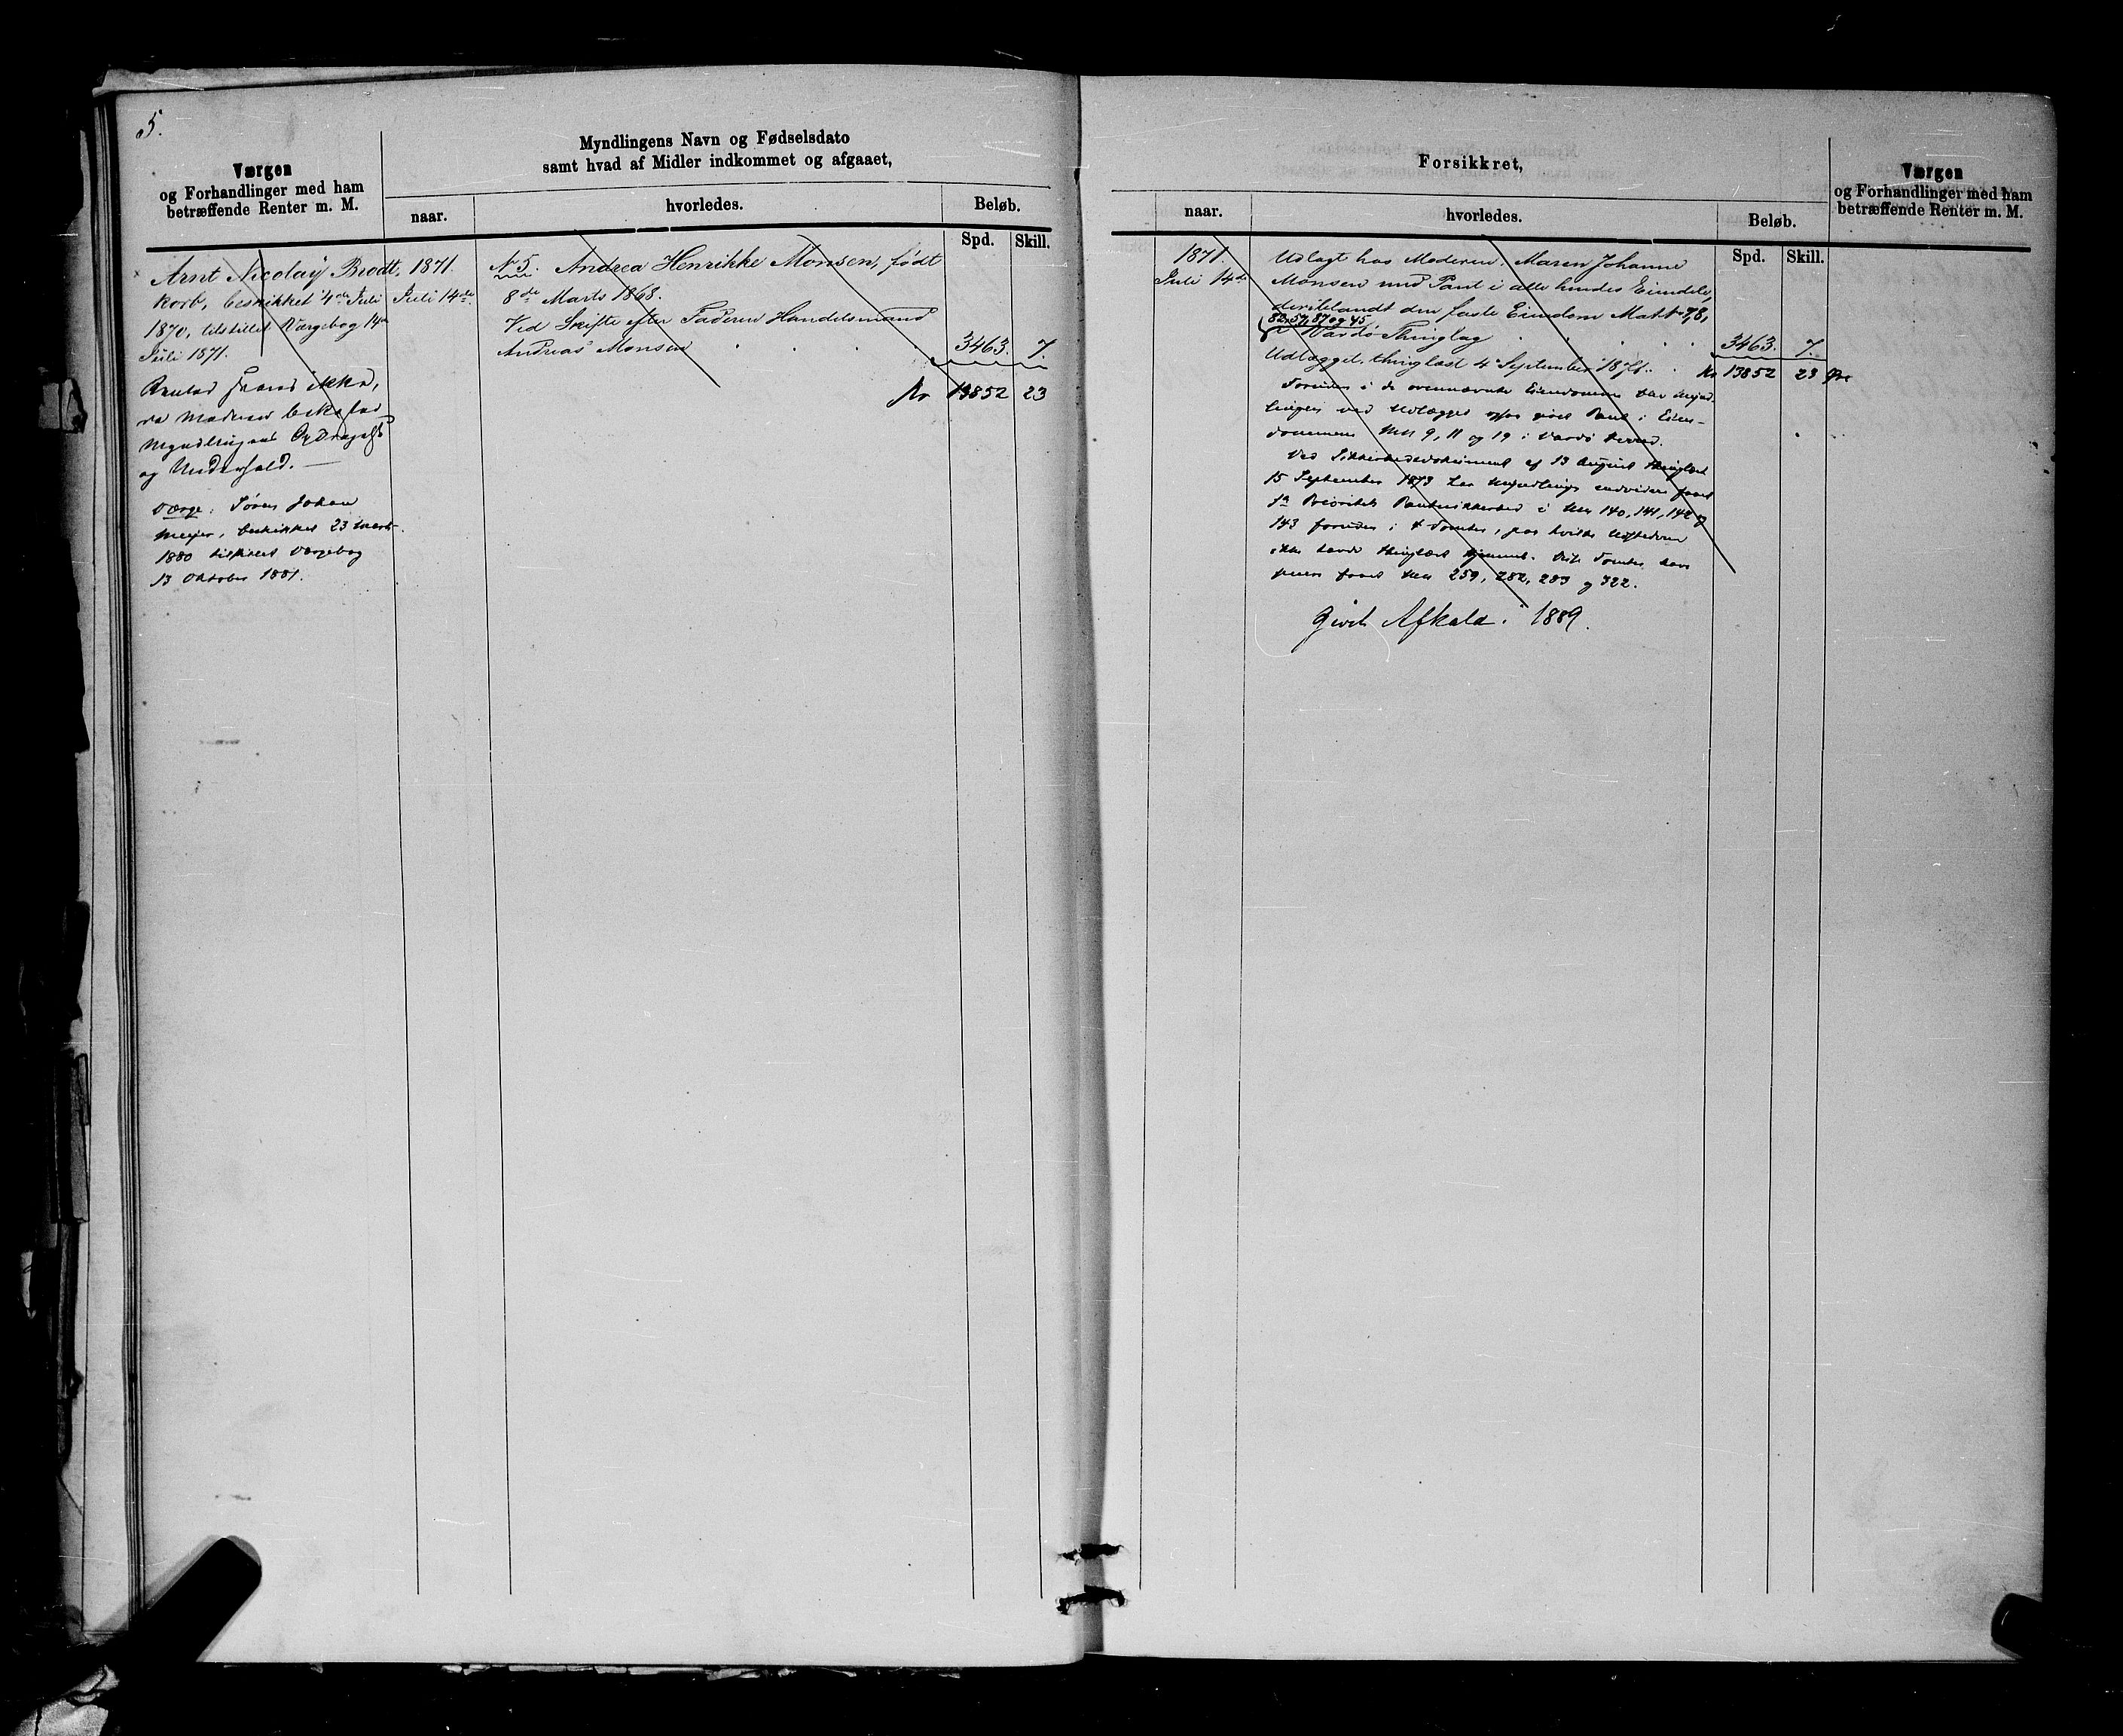 5.
Værgen
og Forhandlinger med ham
betræffende Renter m. M.
Myndlingens Navn og Fødselsdato
samt hvad af Midler indkommet og afgaaet,
naar.
hvorledes.
Beløb.
Spd. Skill.
Arnt Nicolaÿ Brodt
korb, beskikket 4de Juli
1870, tilstillet Værgebog 14de
Juli 1871.
Renter svares ikke,
da Moderen bekoster
Myndlingens Opdragelse
og Underhold. —
Værge: Sören Johan
Meyer, beskikket 23 Marts
1880 tilstillet Værgebog
13 Oktober 1881.
1871.
Juli 14de
No 5. Andrea Henrikke Monsen, født
8de Marts 1868.
Ved Skifte efter Faderen Handelsmand
Andreas Monsen . . . . 3463. 7.
Kr 13852 23
Forsikkret,
naar.
hvorledes.
Beløb.
Spd. Skill.
Værgen
og Forhandlinger med ham
betræffende Renter m. M.
1871.
Juli 14de
Udlagt hos Moderen, Maren Johanne
Monsen med Pant i alle hendes Eiendele,
deriblandt den faste Eiendom Matr 78,
82, 57, 87 og 45
i Vardö Thinglag . . . . 3463. 7.
Udlægget thinglæst 4 September 1871. . Kr 13852 23 Øre
Foruden i de ovennævnte Eiendomme har Mynd-
lingen ved Udlægget ogsaa givet Pant i Eien-
dommene Mn 9, 11 og 19 i Vardö Herred.
Ved Sikkerhedsdokument af 13 August thinglæst
15 September 1873 har Myndlinge endvidere faaet
1ste Prioritets Pantesikkerhed i Mn 140, 141, 142 og
143 foruden i 4 Tomter, paa hvilke Udstederen
ikke havde thinglæst Hjemmel. Disse Tomter have
senere faaet Mn 259, 282, 283 og 322.
Givet Afkald i 1889.